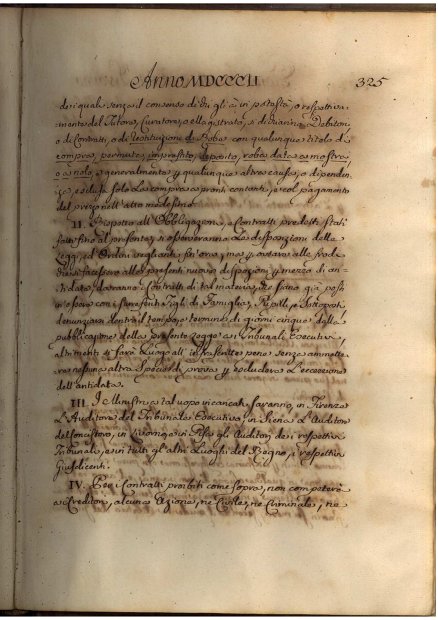 Anno MDCCCII 325
dei quali senza il consenso di chi gli à in potestà, o respettiva-
mente del Tutore, Curatore, o Magistrato, si dicharino Debitori
o di Contratti, o di restituzione di Roba con qualunque titolo di
compra, permuta, imprestito, deposito, roba data a mostra,
o a nolo, e generalmente per qualunque altra causa, o dipenden-
za, esclusa solo la compra a pronti contanti, e col pagamento
del prezzo nell'atto medesimo.
II. Rispetto all'Obbligazioni, e Contratti predetti stati
fatti fino al presente, si osserveranno le disposizioni delle
Leggi, ed Ordini veglianti fin'ora, ma per ovviare alle frodi
che si facessero alle presenti nuove disposizioni per mezzo di an-
tidata, dovranno i Contratti di tal materia, che siano già posti
in essere con i suddetti Figli di Famiglia, Pupilli, e Sottoposti
denunziarsi dentro il termine di giorni cinque dalla
pubblicazione della presente Legge ai Tribunali Esecutivi,
altrimenti si farà luogo all'infrascritte pene senza ammette-
re nessuna altra specie di prova per escludere l'eccezione
dell'antidata.
III. I Ministri a tal uopo incaricati saranno, in Firenze
L'Auditore del Tribunale Esecutivo, in Siena L'Auditore
del Concistoro, in Livorno, e in Pisa gli Auditori dei respettivi
Tribunali, e in tutti gli altri Luoghi del Regno, i respettivi
Giusdicenti.
IV. Per i Contratti proibiti come sopra, non competerà
ai Creditori, alcuna Azione, nè Civile, nè Criminale, nè